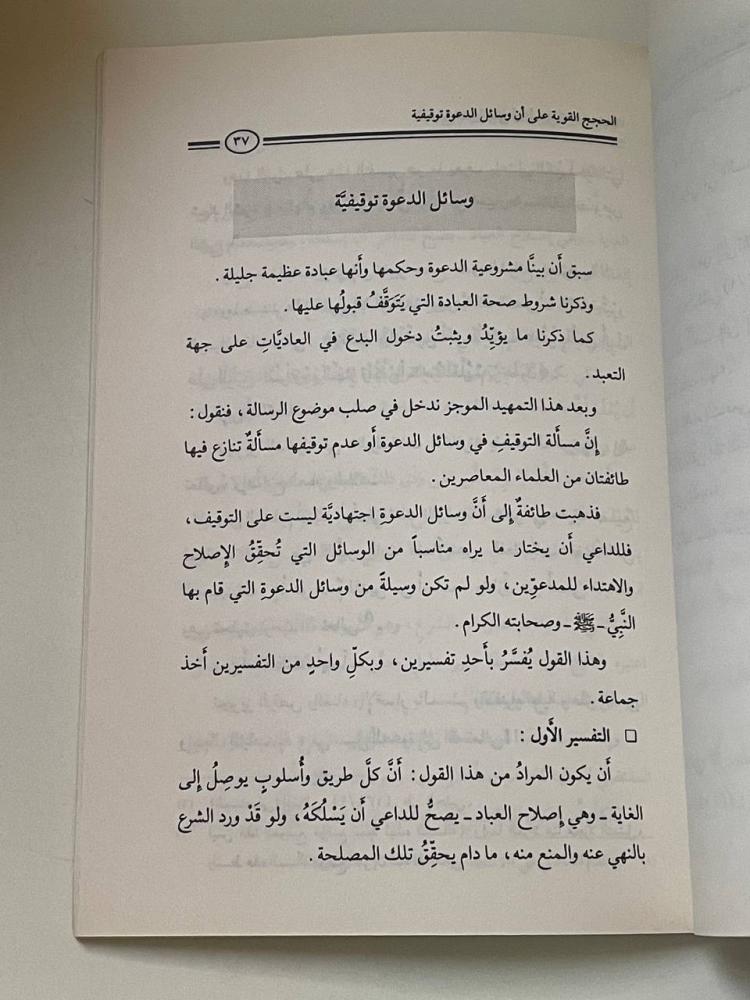 الحجج القوية على أن وسائل الدعوة توقيفية
٣٧
وسائل الدعوة توقيفيَّة
سبق أَن بينَّا مشروعية الدعوة وحكمها وأَنها عبادة عظيمة جليلة .
وذكرنا شروط صحة العبادة التي يَتَوَقَّفُ قبولُها عليها .
كما ذكرنا ما يؤيِّدُ ويثبتُ دخول البدع في العاديَّاتِ على جهة
التعبد .
وبعد هذا التمهيد الموجز ندخل في صلب موضوع الرسالة ، فنقول :
إنَّ مسأَلة التوقيفِ في وسائل الدعوة أَو عدم توقيفها مسأَلةٌ تنازع فيها
طائفتان من العلماء المعاصرين .
فذهبت طائفةٌ إلى أَنَّ وسائل الدعوةِ اجتهاديَّة ليست على التوقيف ،
فللداعي أَن يختار ما يراه مناسباً من الوسائل التي تُحقِّقُ الإصلاح
والاهتداء للمدعوِّين ، ولو لم تكن وسيلةً من وسائل الدعوةِ التي قام بها
النَّبِيُّ ـ ﷺ ـ وصحابته الكرام .
وهذا القول يُفسَّرُ بأَحدِ تفسيرين ، وبكلِّ واحدٍ من التفسيرين أَخذ
جماعة .
□ التفسير الأَول :
أَن يكون المرادُ من هذا القول : أَنَّ كلَّ طريق وأُسلوبٍ يوصِلُ إلى
الغاية ـ وهي إصلاح العباد ـ يصحُّ للداعي أَن يَسْلُكَهُ ، ولو قَدْ ورد الشرع
بالنهي عنه والمنع منه ، ما دام يحقِّقُ تلك المصلحة .